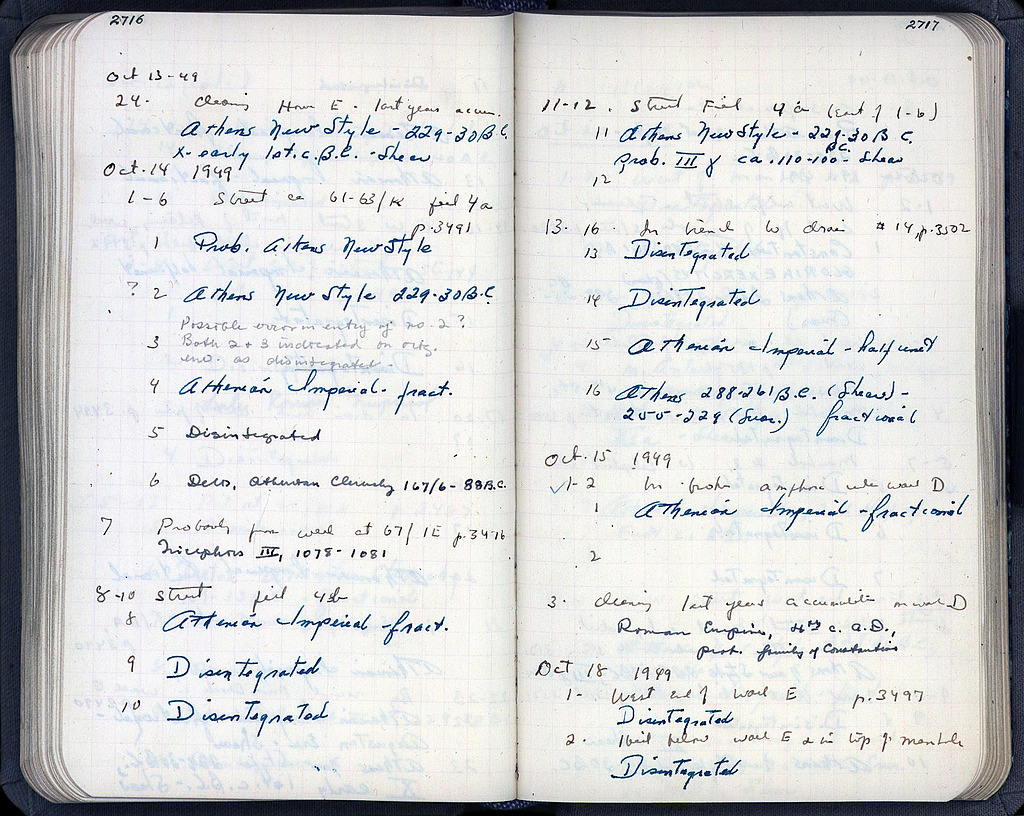 2716
Oct 13-49
24. Cleaning House E. last years accum.
Athens New Style - 229-30 B.C.
X- early 1st. c. B.C. - Shear
Oct. 14 1949
1-6 Street ca 61-63/K fill 4a
p. 3491
1 Prob. Athens New Style
? 2 Athens New Style 229-30 B.C.
Possible error in entry of no. 2?
3 Both 2 + 3 indicated on orig.
env. as disintegrated.
4 Athenian Imperial - fract.
5 Disintegrated
6 Delos, Athenian Cleruchy 167/6 - 88 B.C.
7 Probably from well at 67/IE p. 3476
Nicephorus III, 1078-1081
8-10 Street fill 4b
8 Athenian Imperial - fract.
9 Disintegrated
10 Disintegrated
2717
11-12. Street Fill 4a (east of 1-6)
11 Athens New Style - 229-30 B.C.
Prob. III y ca. 110-100 B.C. Shear
12
13. 16. In trench W drain #14, p. 3502
13 Disintegrated
14 Disintegrated
15 Athenian Imperial - half unit
16 Athens 288-261 B.C. (Shear) -
255-229 (Svor.) fractional
Oct. 15 1949
1-2 In broken amphora under wall D
1 Athenian Imperial - fractional
2
3. Cleaning last years accumulation on wall D
Roman Empire, 4th c. A.D.,
prob. family of Constantius
Oct 18 1949
1- West end of wall E p. 3497
Disintegrated
2. below wall E in top of manhole
Disintegrated